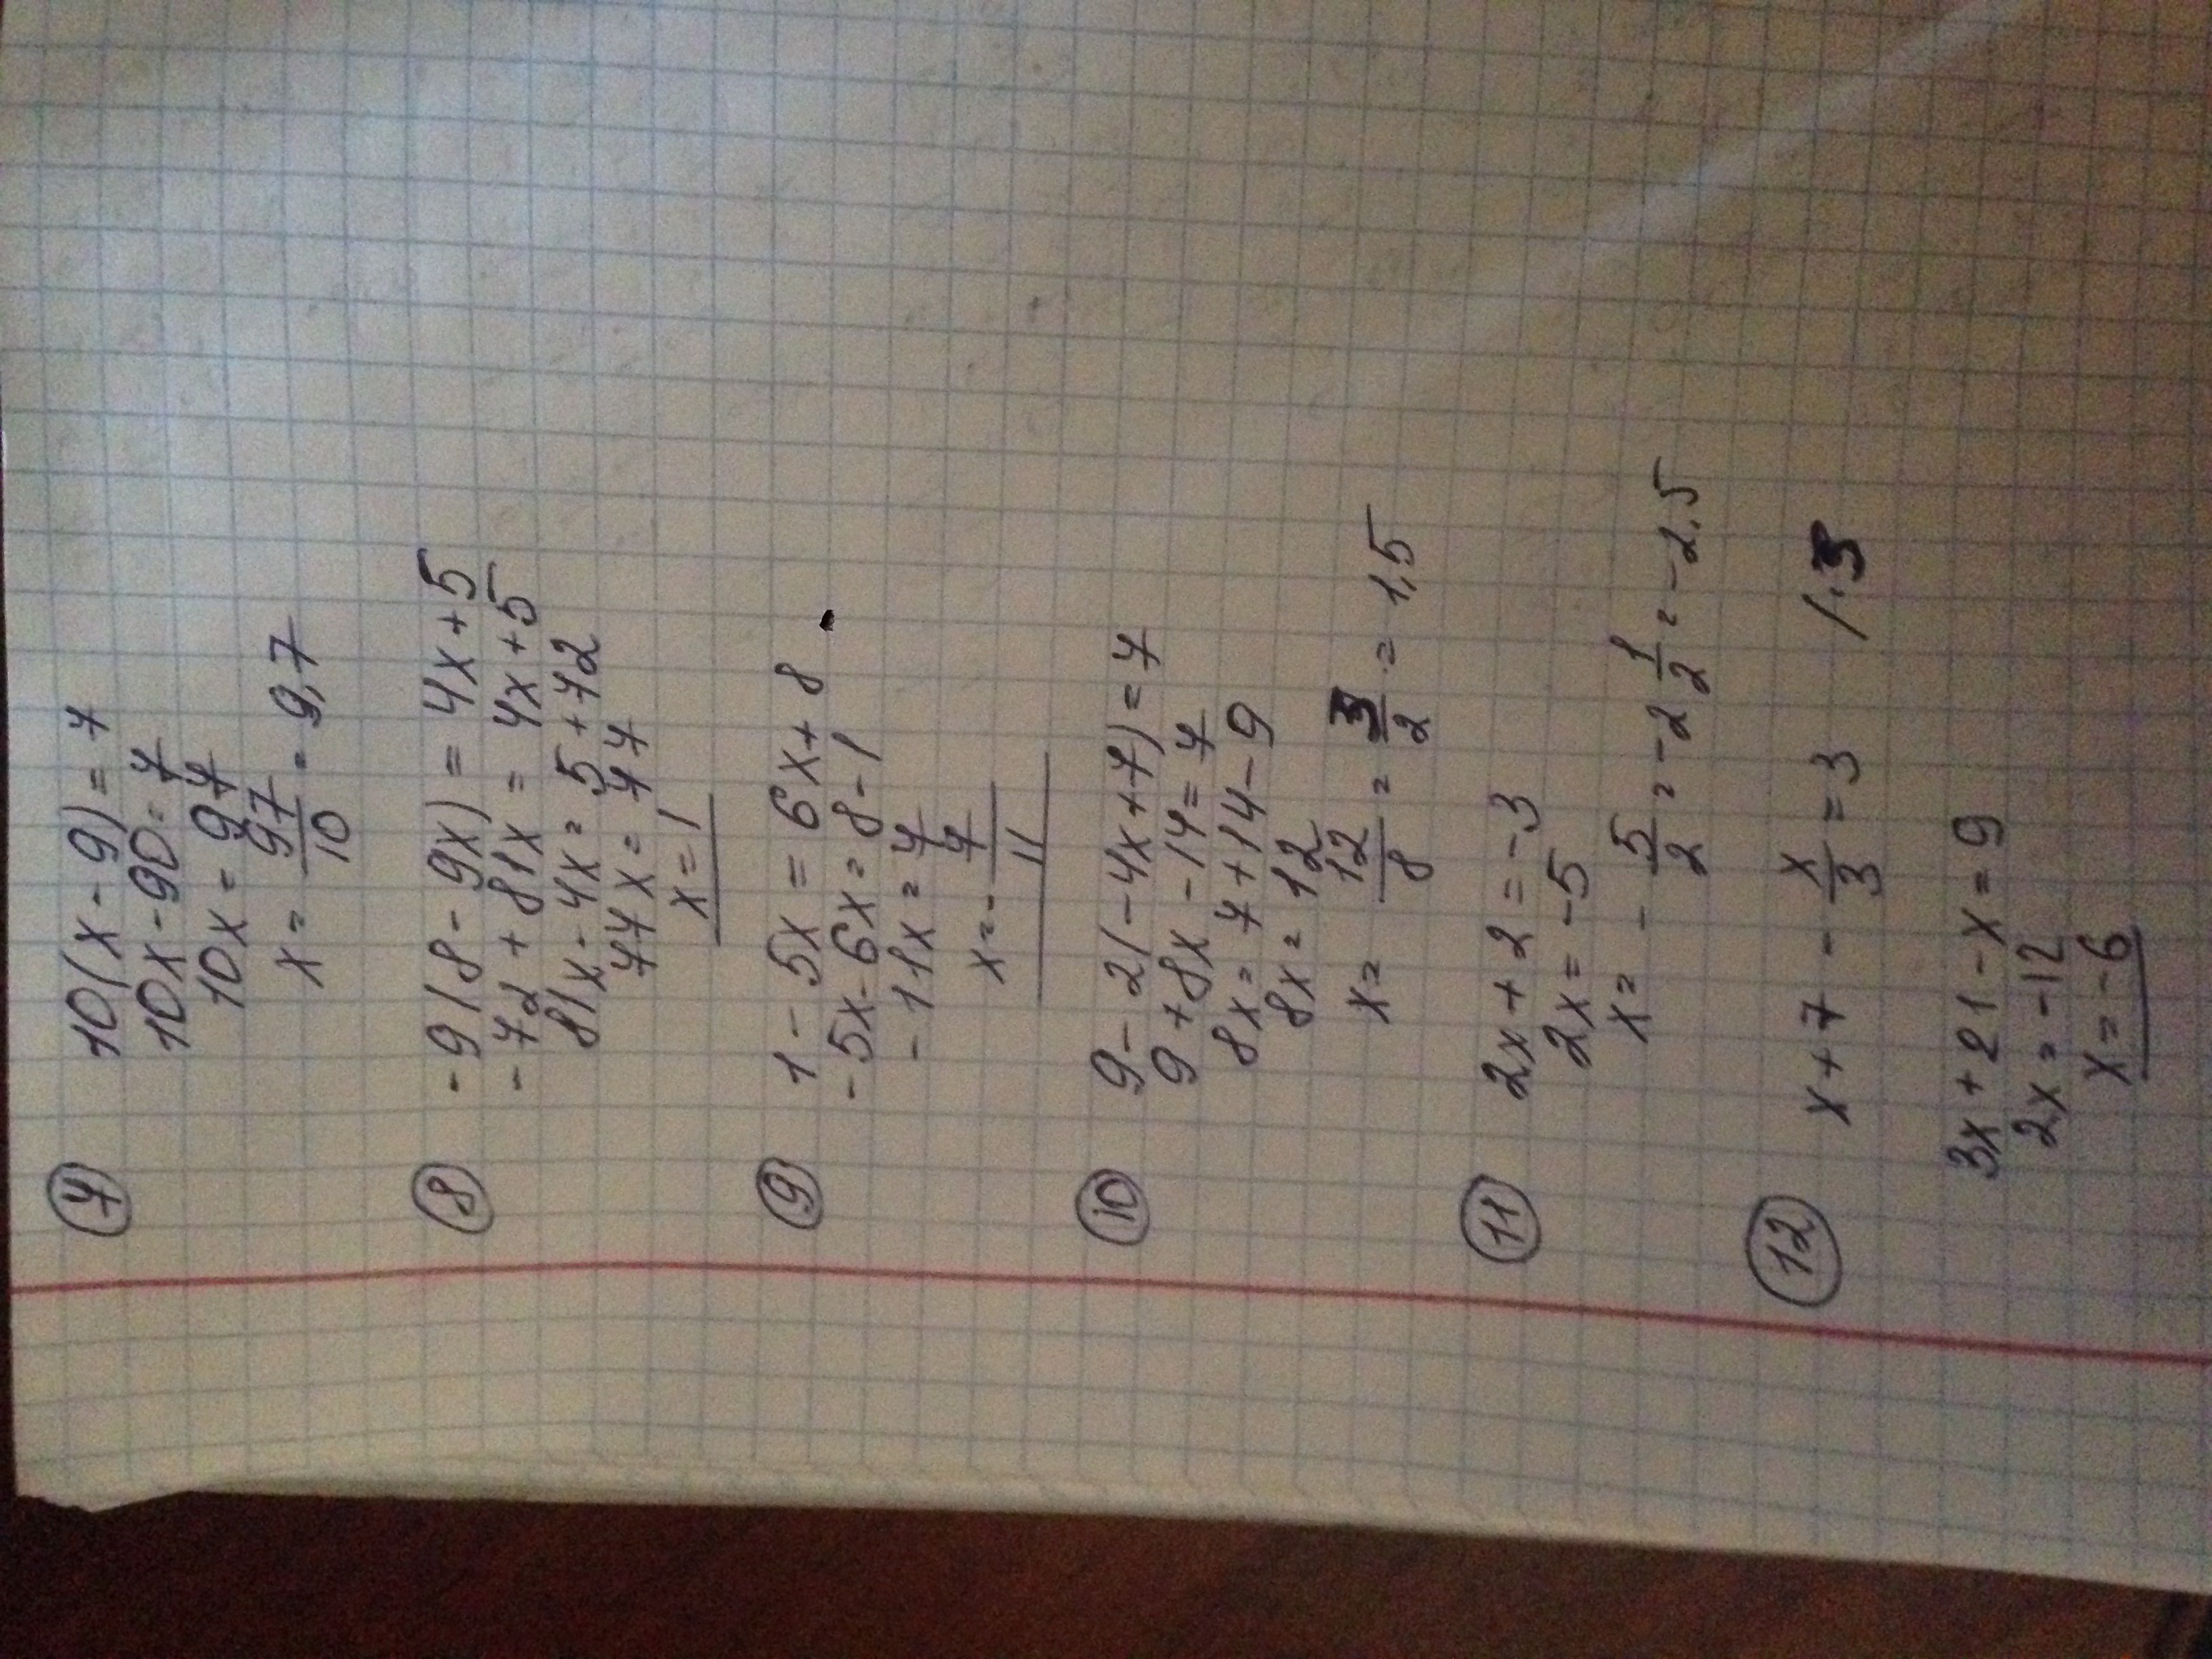 7 10(x-9)=7
10x-90=7
10x=97
x=97/10=9,7
8 -9(8-9x)=4x+5
-72+81x=4x+5
81x-4x=5+72
77x=77
x=1
9 1-5x=6x+8
-5x-6x=8-1
-11x=7
x=-7/11
10 9-2(-4x+7)=7
9+8x-14=7
8x=7+14-9
8x=12
x=12/8=3/2=1,5
11 2x+2=-3
2x=-5
x=-5/2=-2 1/2=-2,5
12 x+7-x/3=3 /·3
3x+21-x=9
2x=-12
x=-6